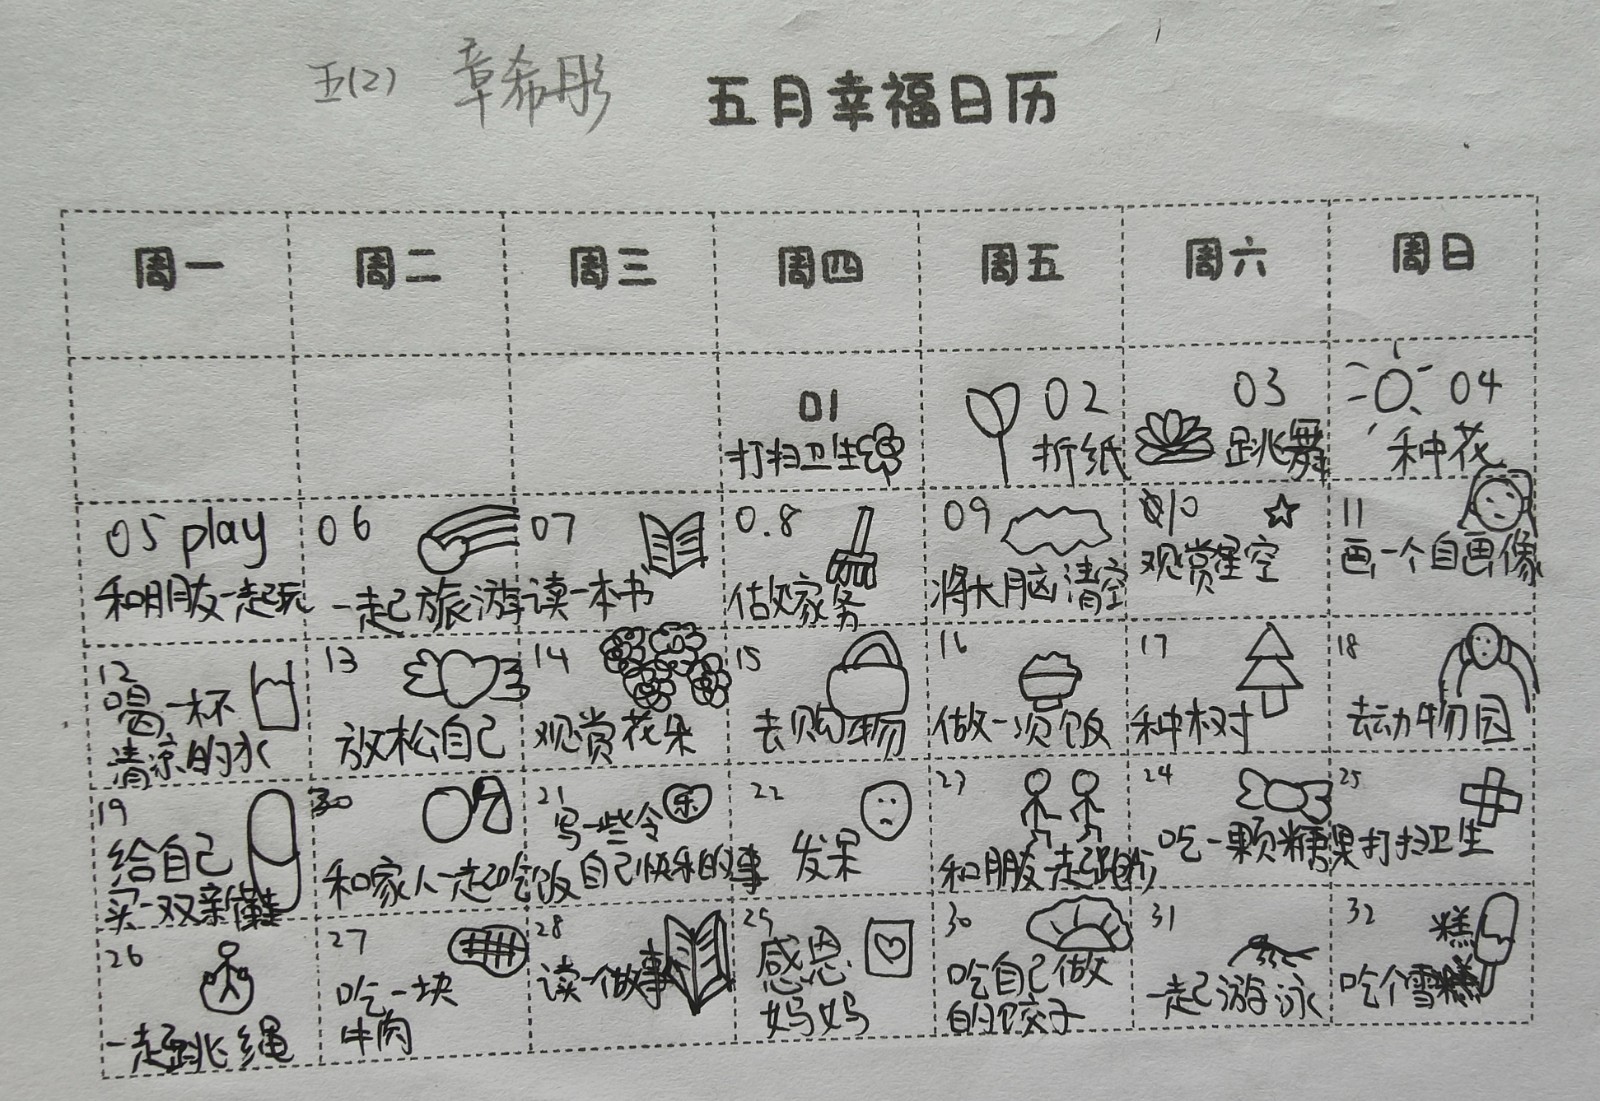 五(2) 章希彤 五月幸福日历
周一 周二 周三 周四 周五 周六 周日
01
打扫卫生
02
折纸
03
跳舞
04
种花
05 play
和朋友一起玩
06
一起旅游
07
读一本书
0.8
做家务
09
将大脑清空
10
观赏星空
11
画一个自画像
12
喝一杯
清凉的水
13
放松自己
14
观赏花朵
15
去购物
16
做一次饭
17
种树
18
去动物园
19
给自己
买一双新鞋
20
和家人一起吃饭
21
写一些令 乐
自己快乐的事
22
发呆
23
和朋友一起跑步
24
吃一颗糖果
25
打扫卫生
26
一起跳绳
27
吃一块
牛肉
28
读一做事
29
感恩
妈妈
30
吃自己做
的饺子
31
一起游泳
32
糕
吃个雪